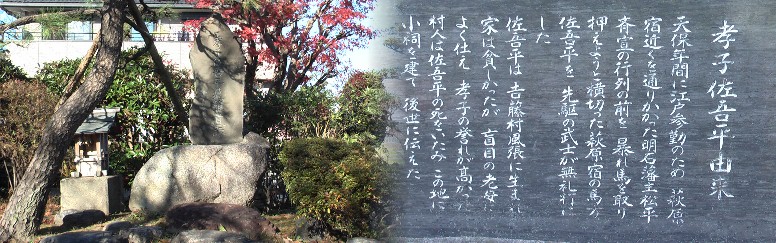 孝子佐吾平由来
天保年間に江戸参勤のため 萩原
宿近くを通りかかった明石藩主松平
斉宣の行列の前を 暴れ馬を取り
押えようと横切った萩原宿の馬方
佐吾平を 先駆の武士が無礼討に
した
佐吾平は 吉藤村風張に生まれ
家は貧しかったが 盲目の老母に
よく仕え 孝子の誉れが高かった
村人は佐吾平の死をいたみ この地に
小祠を建て 後世に伝えた